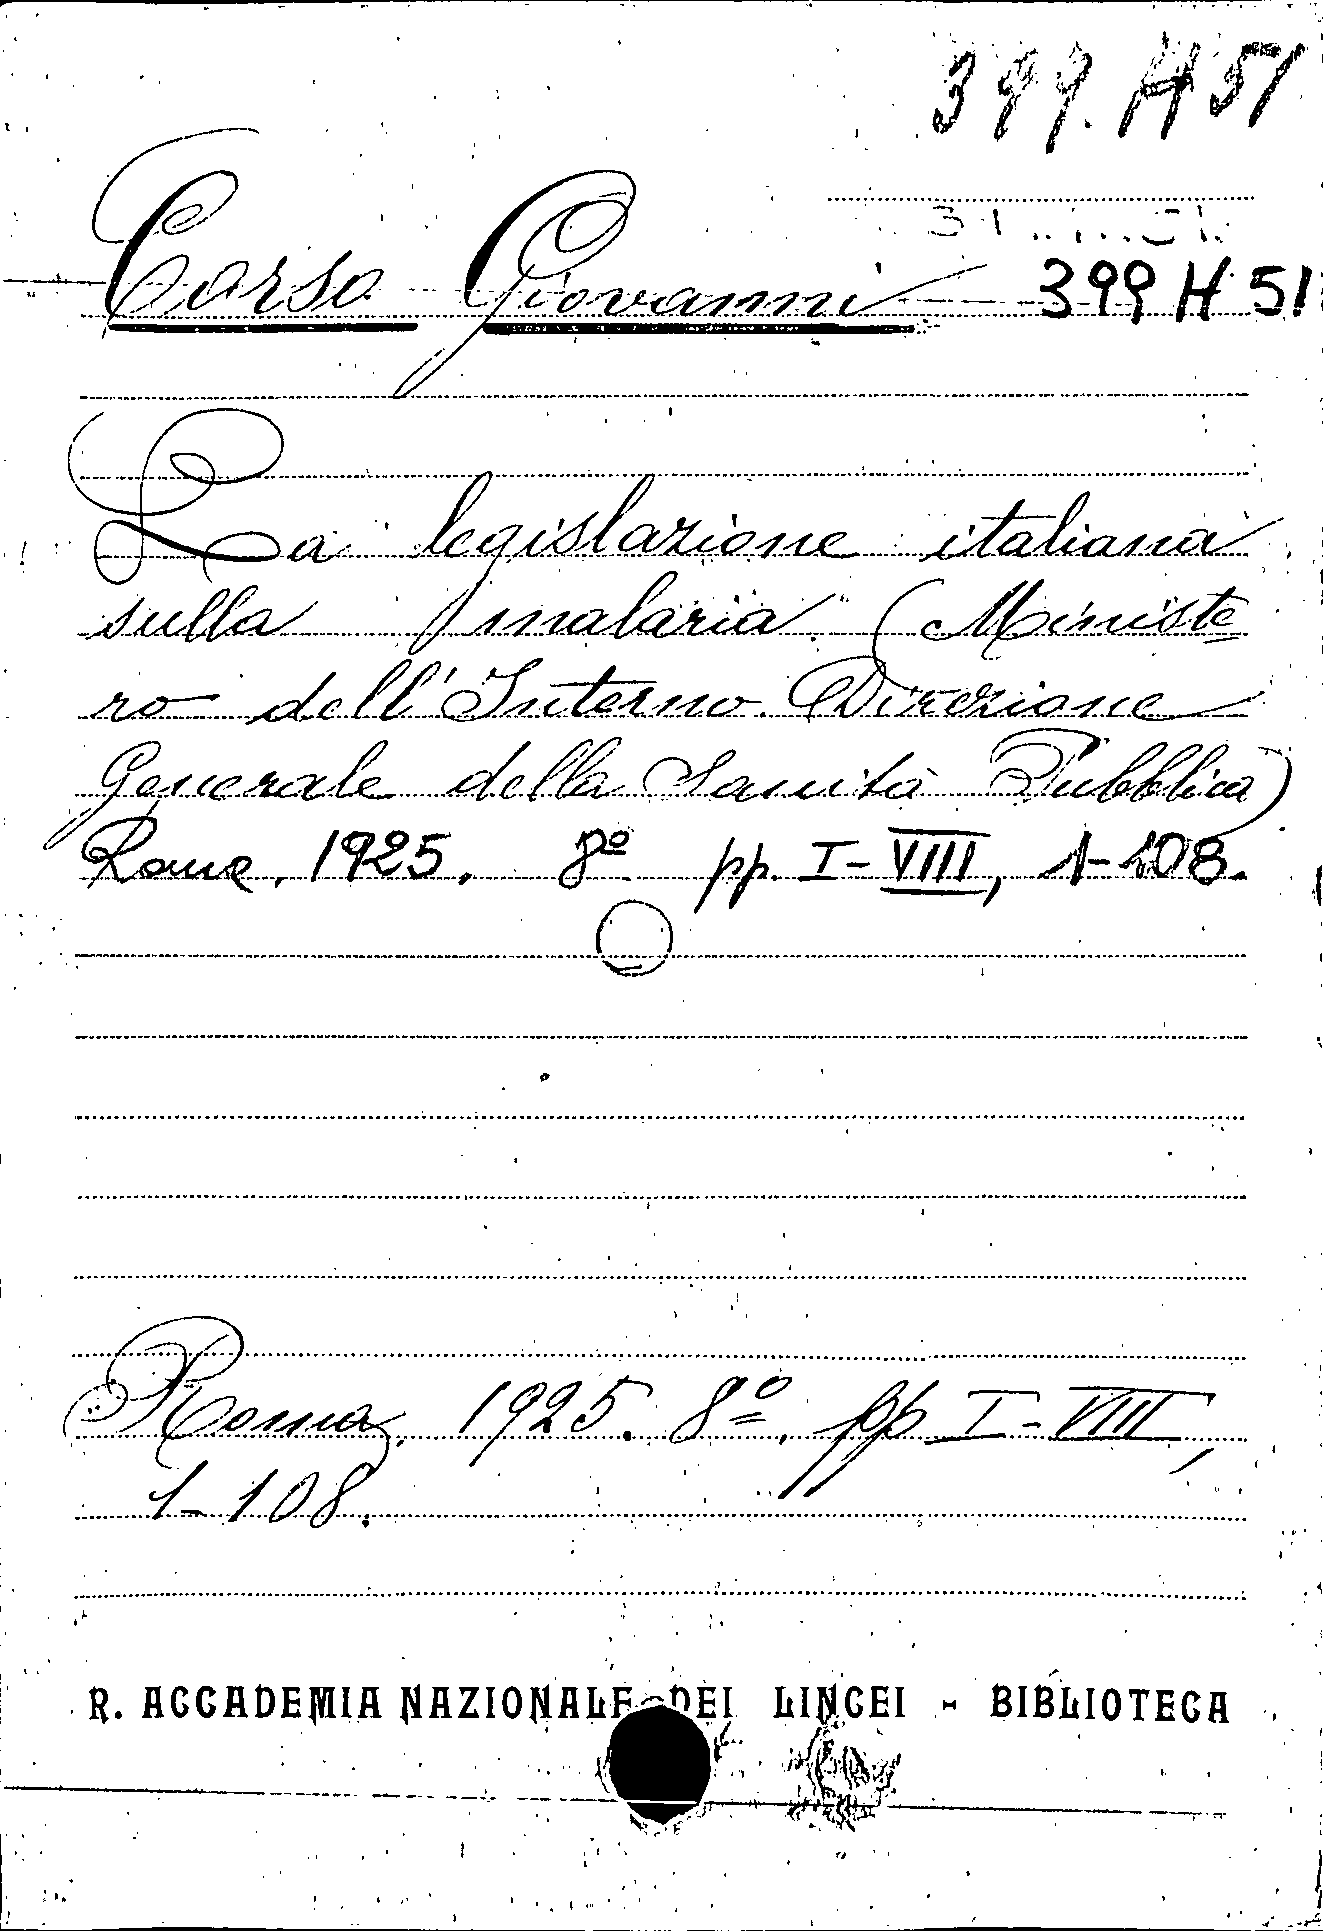 399. H 51
Corso Giovanni 399 H 51
La legislazione italiana
sulla malaria. (Ministe
ro dell'Interno. Direzione
Generale della Sanità Pubblica)
Roma, 1925. 8º pp. I-VIII, 1-108.
Roma, 1925. 8º, pp I-VIII,
1-108.
R. ACCADEMIA NAZIONALE DEI LINCEI - BIBLIOTECA